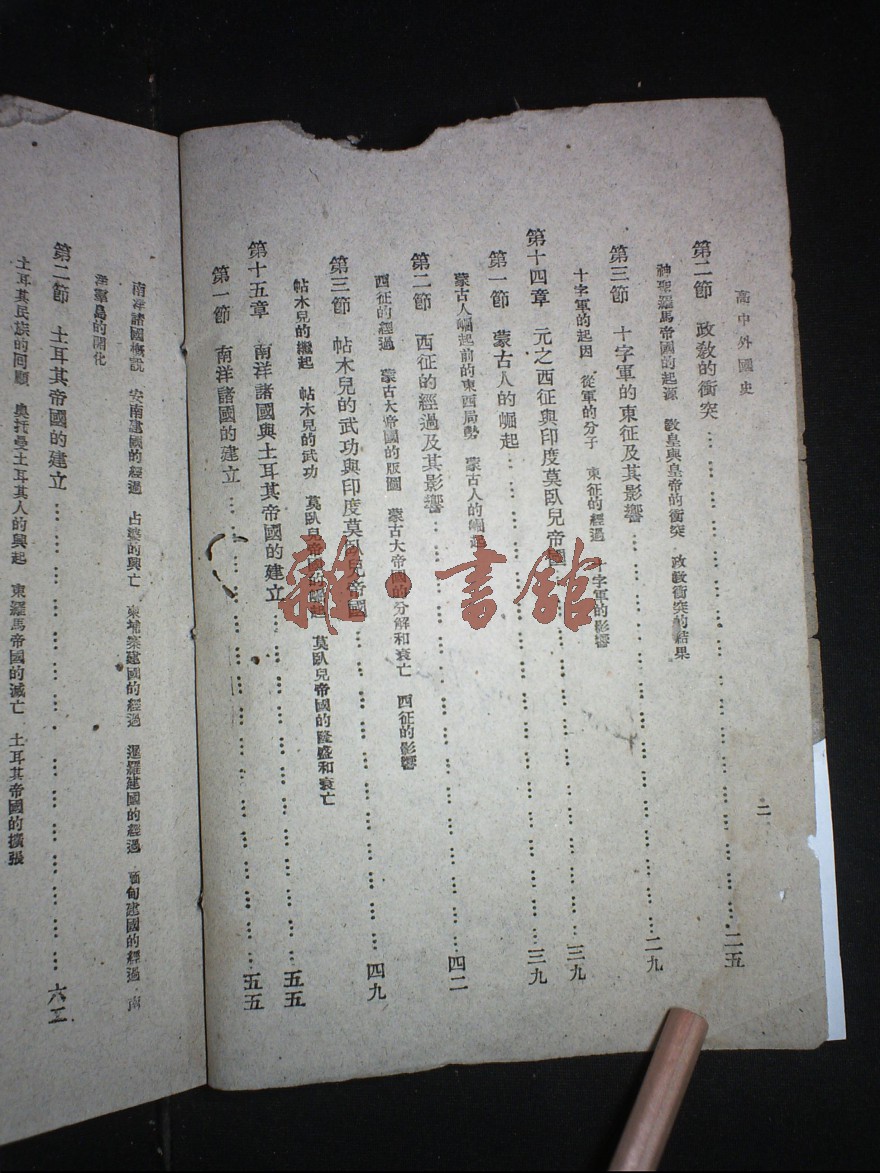 高中外國史
二
第二節 政教的衝突……二五
神聖羅馬帝國的起源 教皇與皇帝的衝突 政教衝突的結果
第三節 十字軍的東征及其影響……二九
十字軍的起因 從軍的分子 東征的經過 十字軍的影響
第十四章 元之西征與印度莫臥兒帝國……三九
第一節 蒙古人的崛起……三九
蒙古人崛起前的東西局勢 蒙古人的崛起
第二節 西征的經過及其影響……四二
西征的經過 蒙古大帝國的版圖 蒙古大帝國的分解和衰亡 西征的影響
第三節 帖木兒的武功與印度莫臥兒帝國……四九
帖木兒的繼起 帖木兒的武功 莫臥兒帝國的崛起 莫臥兒帝國的隆盛和衰亡
第十五章 南洋諸國與土耳其帝國的建立……五五
第一節 南洋諸國的建立……五五
南洋諸國概說 安南建國的經過 占婆的興亡 柬埔寨建國的經過 暹羅建國的經過 緬甸建國的經過 南
洋羣島的開化
第二節 土耳其帝國的建立……六
土耳其民族的回顧 奧托曼土耳其人的興起 東羅馬帝國的滅亡 土耳其帝國的擴張
雜·書館